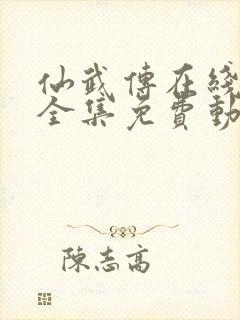 仙武傳在綫
全集免費動
陳志高